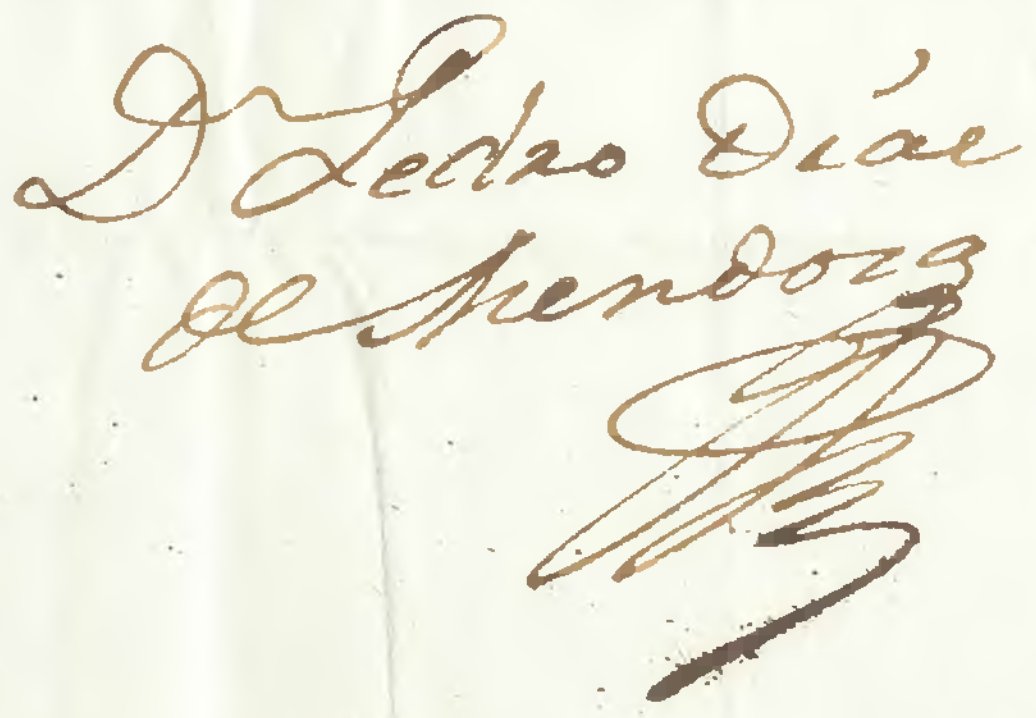 Dn Pedro Díaz
de Mendoza